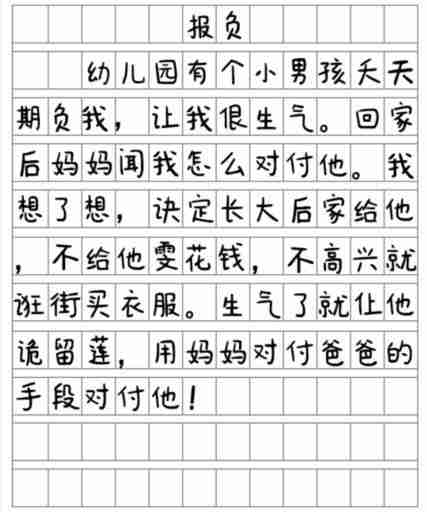 报负
幼儿园有个小男孩天天
期负我，让我很生气。回家
后妈妈闻我怎么对付他。我
想了想，诀定长大后家给他
，不给他雯花钱，不高兴就
诳街买衣服。生气了就仩他
诡留莲，用妈妈对付爸爸的
手段对付他！